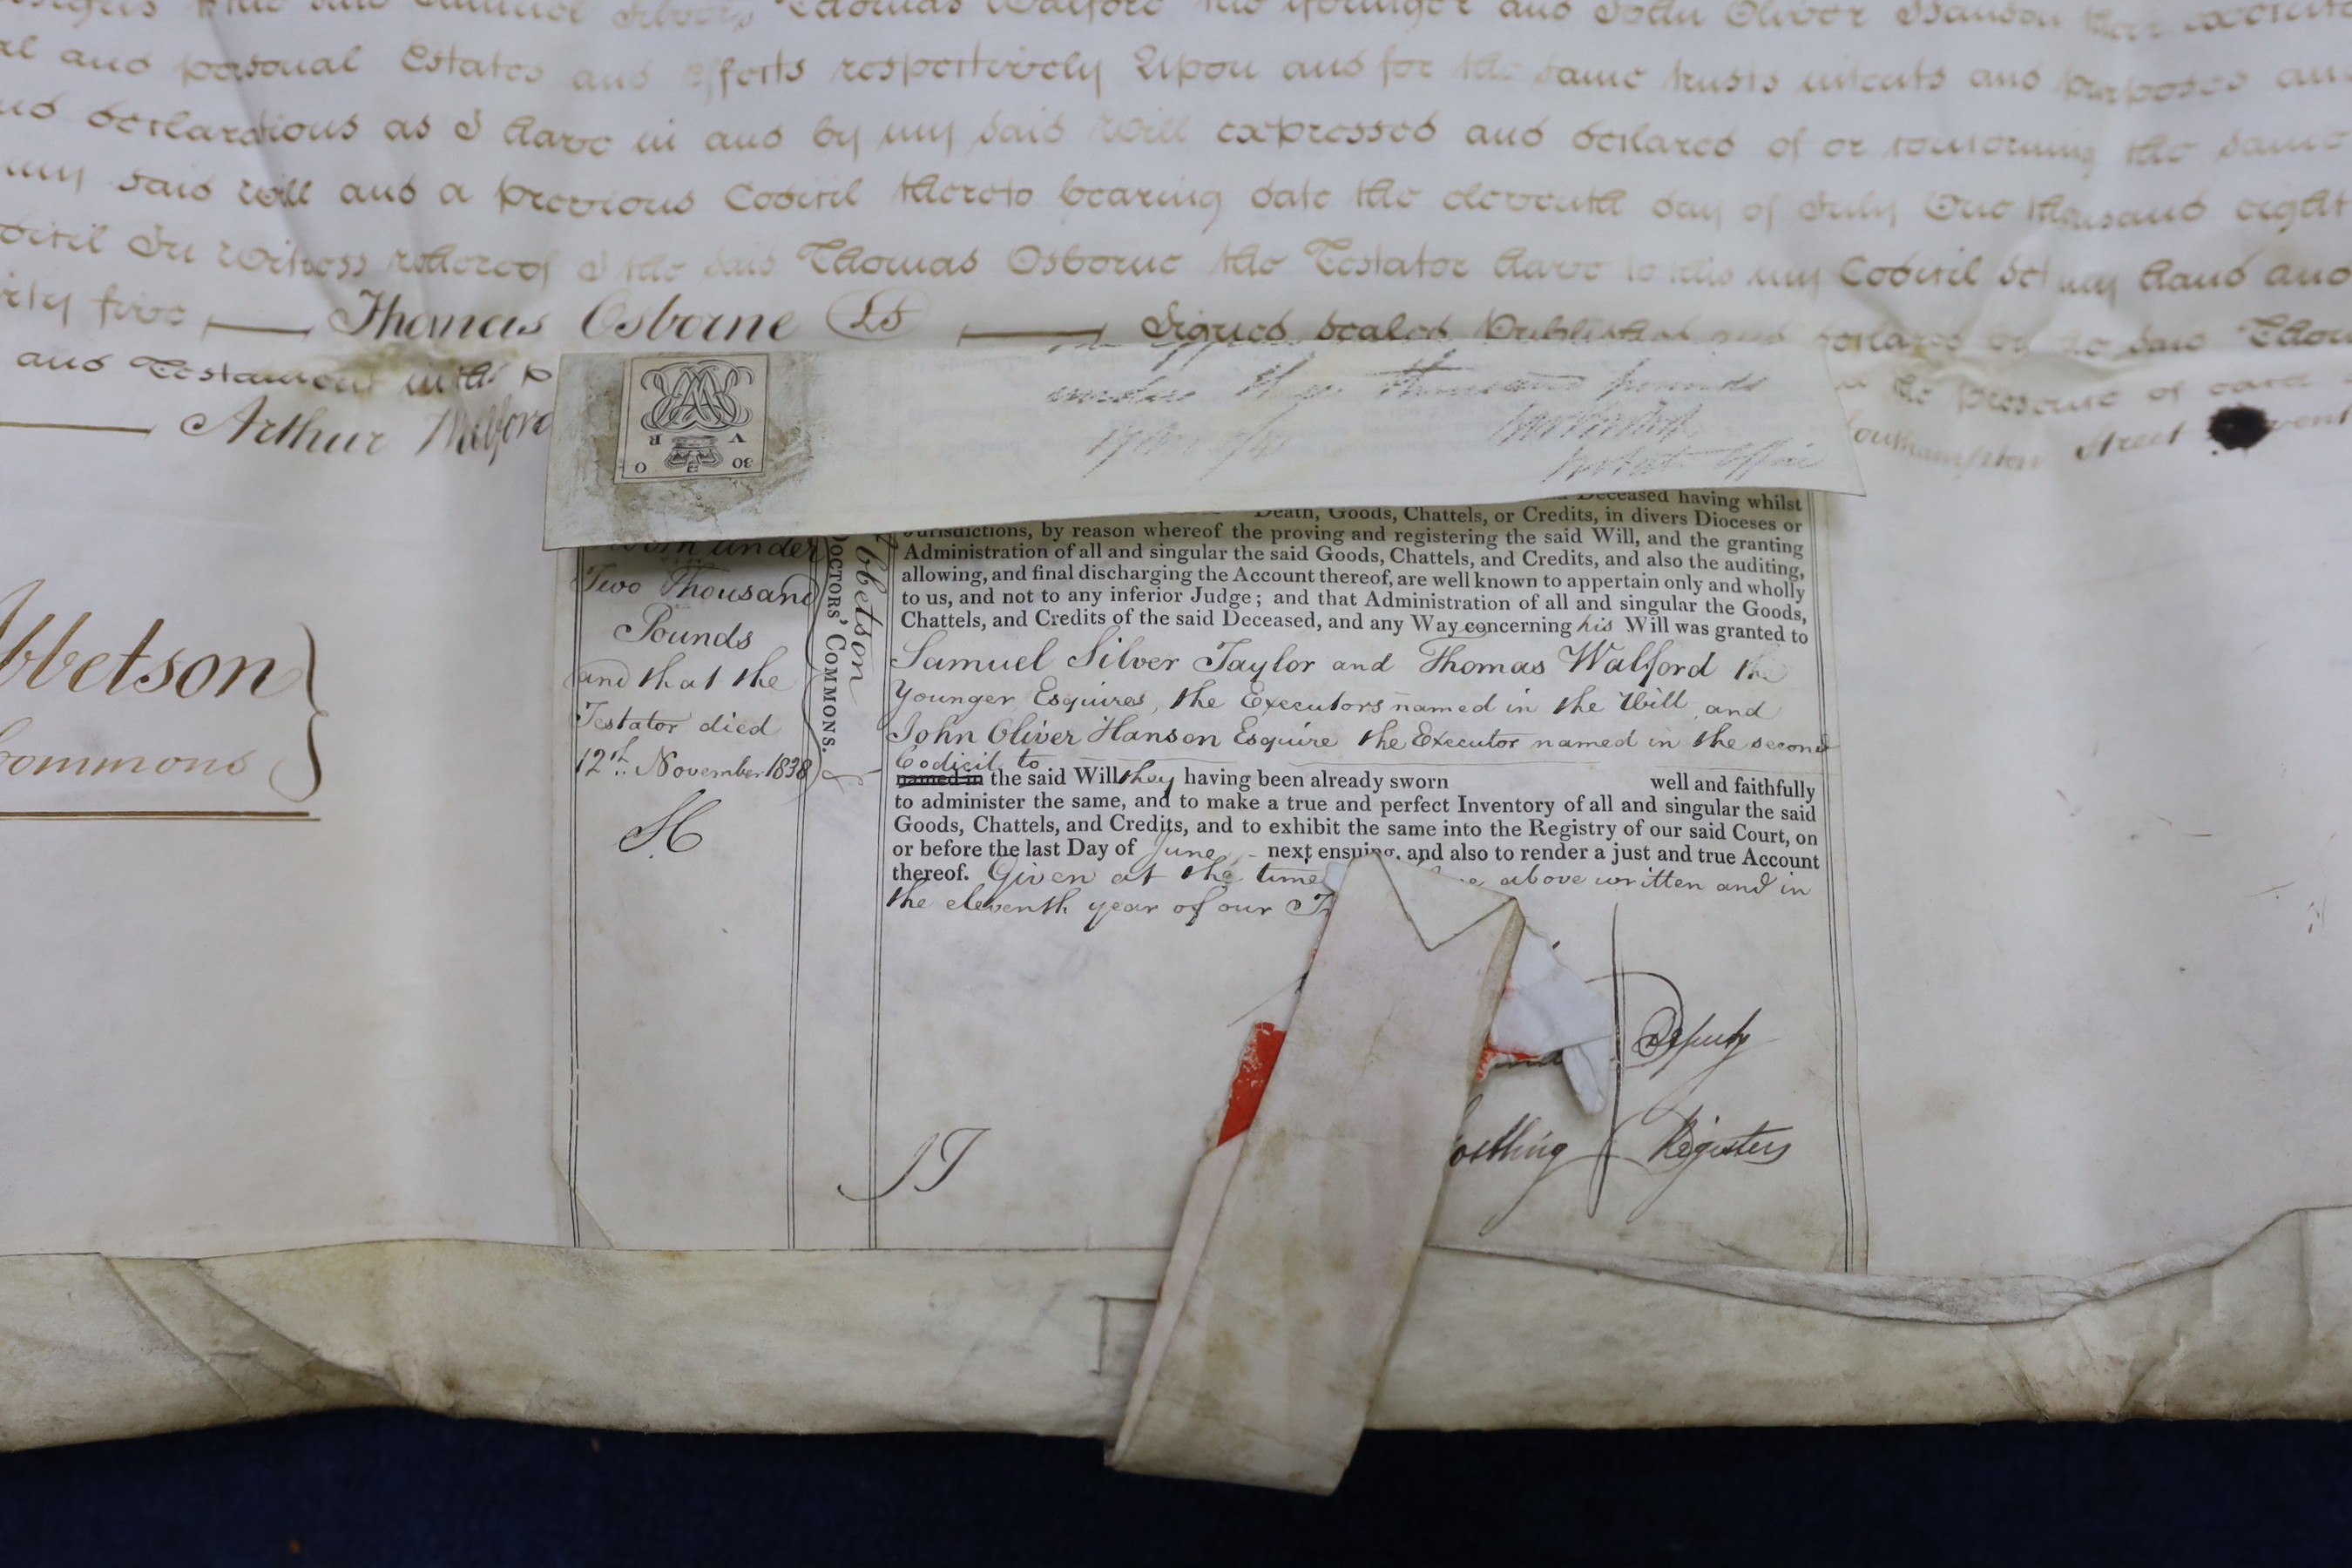 Thomas Walford the younger and John Oliver Hanson their
al and personal Estates and Effects respectively Upon and for the same trusts intents and purposes and
declarations as I have in and by my said Will expressed and declared of or concerning the same
my said will and a previous Codicil thereto bearing date the eleventh day of July One thousand eight
In Witness whereof I the said Thomas Osborne the Testator have to this my Codicil set my hand and
five Thomas Osborne LS Signed Sealed Published and declared by the said
and Testament in the p
the presence of
Arthur
Southampton Street
V R
30
thousand pounds
Deceased having whilst
Death, Goods, Chattels, or Credits, in divers Dioceses or
Jurisdictions, by reason whereof the proving and registering the said Will, and the granting
Administration of all and singular the said Goods, Chattels, and Credits, and also the auditing,
allowing, and final discharging the Account thereof, are well known to appertain only and wholly
to us, and not to any inferior Judge; and that Administration of all and singular the Goods,
Chattels, and Credits of the said Deceased, and any Way concerning his Will was granted to
Samuel Silver Taylor and Thomas Walford the
Younger Esquires, the Executors named in the Will, and
John Oliver Hanson Esquire the Executor named in the second
Codicil to
named in the said Will they having been already sworn well and faithfully
to administer the same, and to make a true and perfect Inventory of all and singular the said
Goods, Chattels, and Credits, and to exhibit the same into the Registry of our said Court, on
or before the last Day of June next ensuing, and also to render a just and true Account
thereof. Given at the time above written and in
the eleventh year of our Tr
Sworn under
Two Thousand
Pounds
and that the
Testator died
12th November 1838
DOCTORS' COMMONS.
bbetson
bbetson
Commons
Deputy
Registers